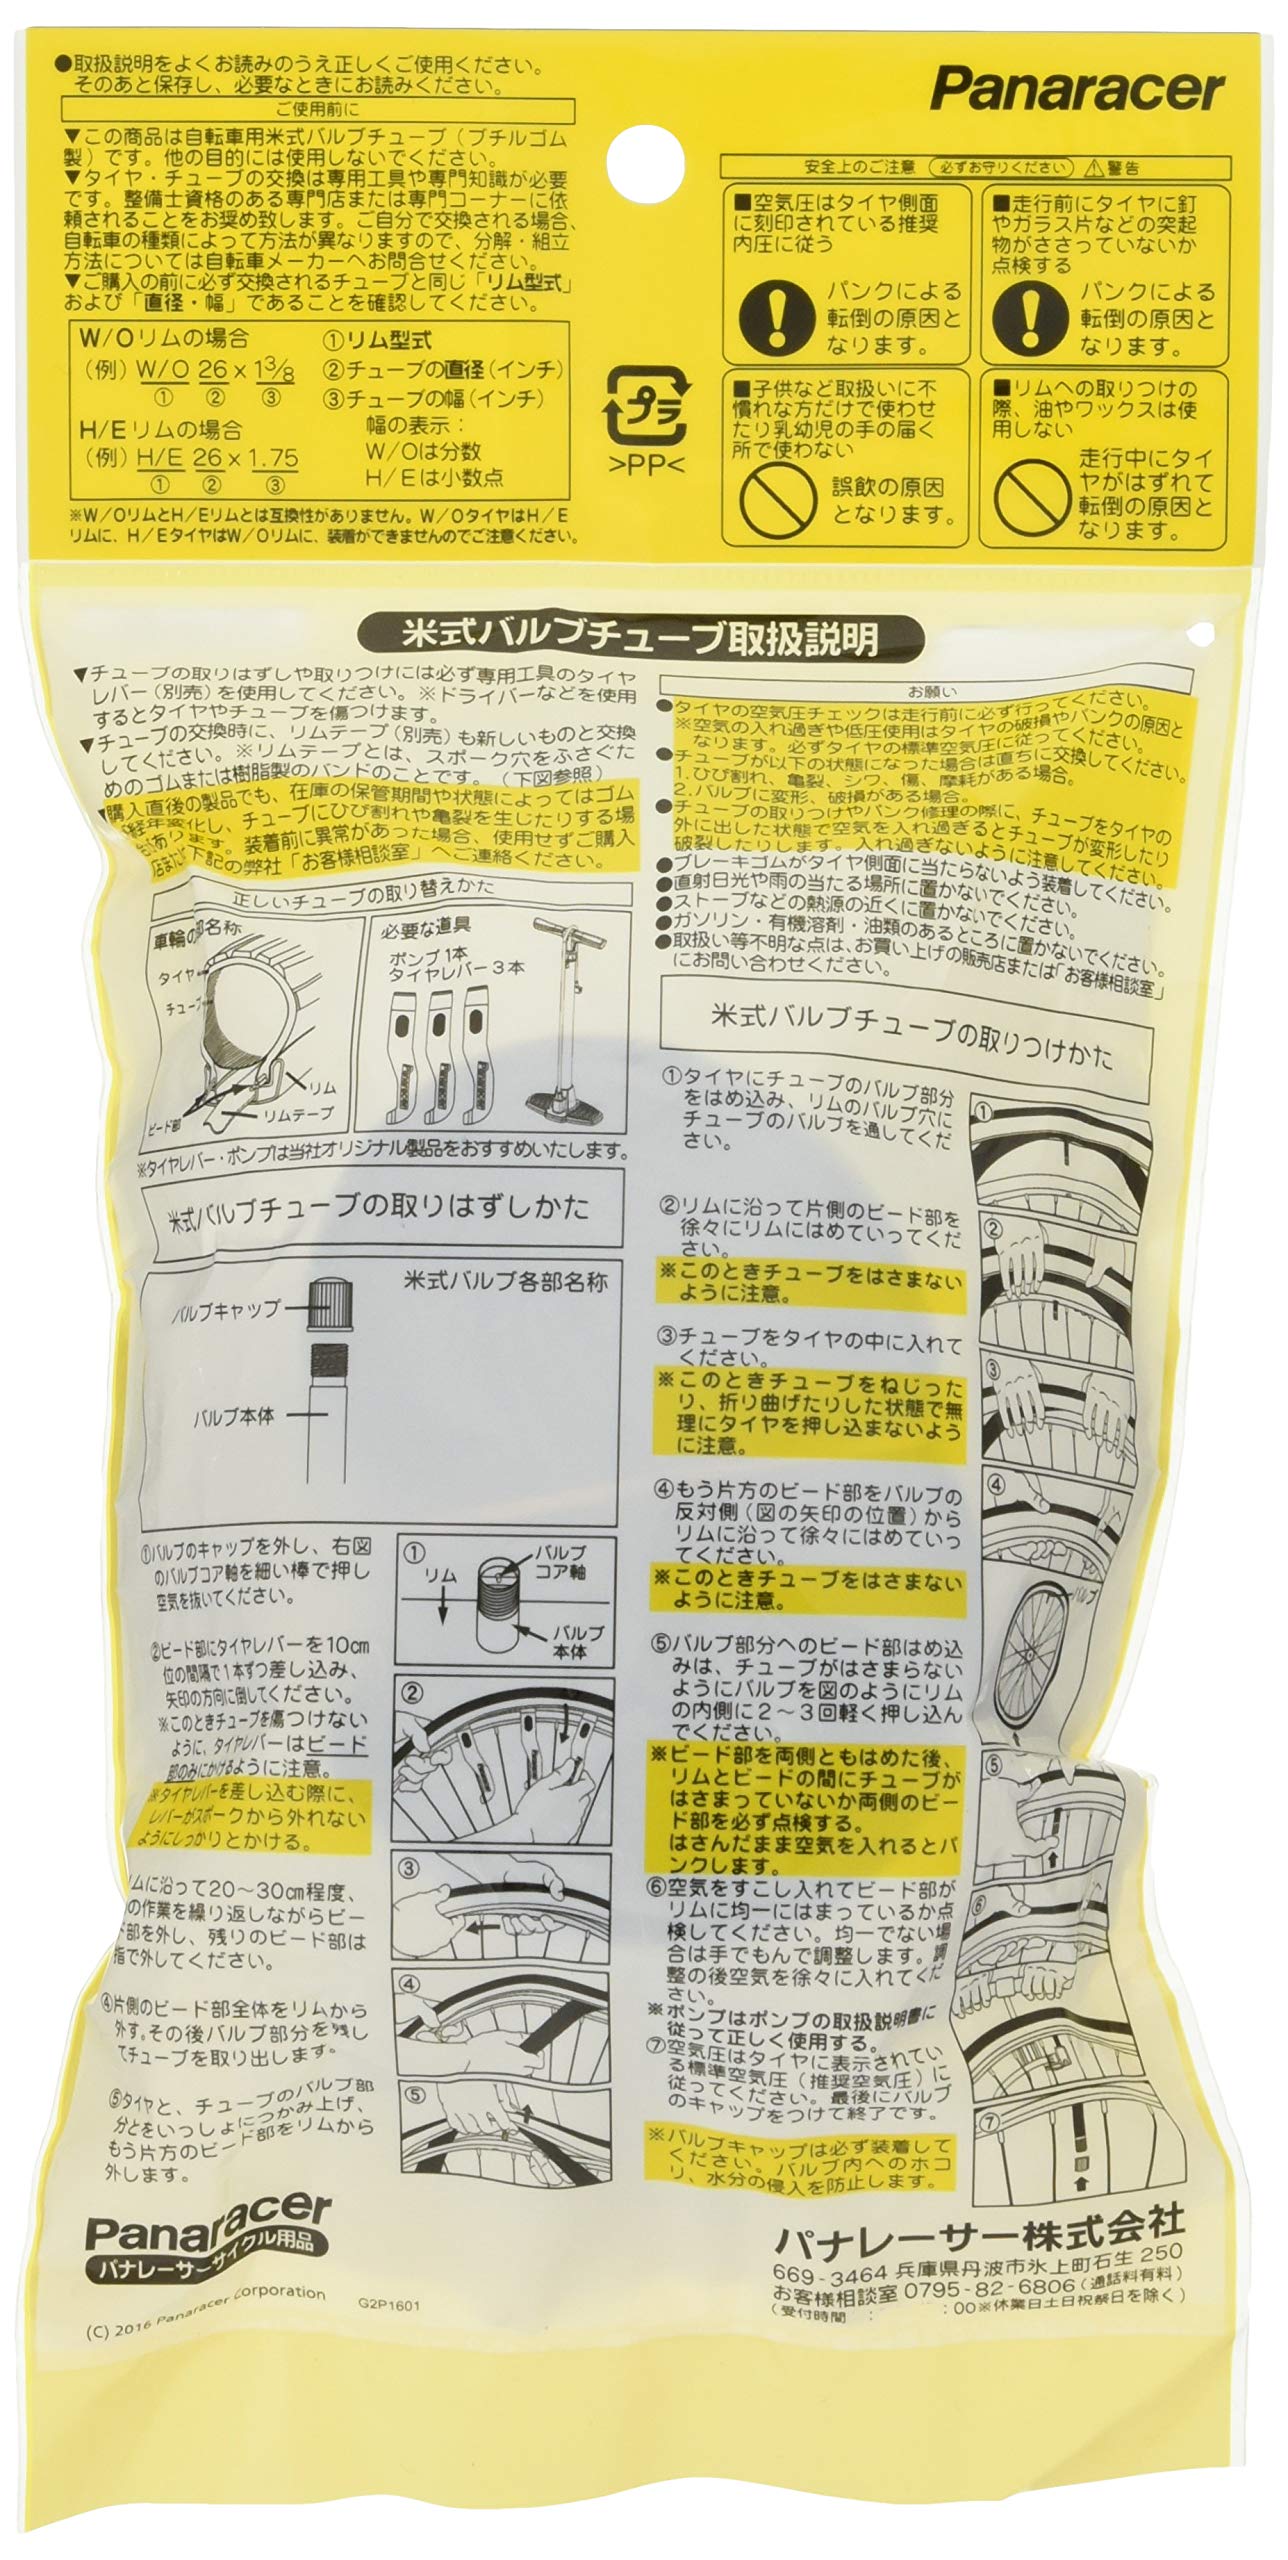 ●取扱説明をよくお読みのうえ正しくご使用ください。
そのあと保存し、必要なときにお読みください。
ご使用前に
▼この商品は自転車用米式バルブチューブ（ブチルゴム
製）です。他の目的には使用しないでください。
▼タイヤ・チューブの交換は専用工具や専門知識が必要
です。整備士資格のある専門店または専門コーナーに依
頼されることをお奨め致します。ご自分で交換される場合、
自転車の種類によって方法が異なりますので、分解・組立
方法については自転車メーカーへお問合せください。
▼ご購入の前に必ず交換されるチューブと同じ「リム型式」
および「直径・幅」であることを確認してください。
W/Oリムの場合
（例）W/O 26 × 1 3/8
① ② ③
H/Eリムの場合
（例）H/E 26 × 1.75
① ② ③
①リム型式
②チューブの直径（インチ）
③チューブの幅（インチ）
幅の表示：
W/Oは分数
H/Eは小数点
※W/OリムとH/Eリムとは互換性がありません。W/OタイヤはH/E
リムに、H/EタイヤはW/Oリムに、装着ができませんのでご注意ください。
プラ
>PP<
Panaracer
安全上のご注意 （必ずお守りください） ⚠警告
■空気圧はタイヤ側面
に刻印されている推奨
内圧に従う
パンクによる
転倒の原因と
なります。
■走行前にタイヤに釘
やガラス片などの突起
物がささっていないか
点検する
パンクによる
転倒の原因と
なります。
■子供など取扱いに不
慣れな方だけで使わせ
たり乳幼児の手の届く
所で使わない
誤飲の原因
となります。
■リムへの取りつけの
際、油やワックスは使
用しない
走行中にタイ
ヤがはずれて
転倒の原因と
なります。
米式バルブチューブ取扱説明
▼チューブの取りはずしや取りつけには必ず専用工具のタイヤ
レバー（別売）を使用してください。※ドライバーなどを使用
するとタイヤやチューブを傷つけます。
▼チューブの交換時に、リムテープ（別売）も新しいものと交換
してください。※リムテープとは、スポーク穴をふさぐた
めのゴムまたは樹脂製のバンドのことです。（下図参照）
▼購入直後の製品でも、在庫の保管期間や状態によってはゴム
が経年変化し、チューブにひび割れや亀裂を生じたりする場
合があります。装着前に異常があった場合、使用せずご購入
店または下記の弊社「お客様相談室」へご連絡ください。
正しいチューブの取り替えかた
車輪の部名称
タイヤ
チューブ
リム
リムテープ
ビード部
必要な道具
ポンプ1本
タイヤレバー3本
Panaracer
Panaracer
Panaracer
※タイヤレバー・ポンプは当社オリジナル製品をおすすめいたします。
米式バルブチューブの取りはずしかた
米式バルブ各部名称
バルブキャップ
バルブ本体
①バルブのキャップを外し、右図
のバルブコア軸を細い棒で押し
空気を抜いてください。
①
リム
バルブ
コア軸
バルブ
本体
②ビード部にタイヤレバーを10cm
位の間隔で1本ずつ差し込み、
矢印の方向に倒してください。
※このときチューブを傷つけない
ように、タイヤレバーはビード
部のみにかけるように注意。
※タイヤレバーを差し込む際に、
レバーがスポークから外れない
ようにしっかりとかける。
②
リムに沿って20〜30cm程度、
の作業を繰り返しながらビー
ド部を外し、残りのビード部は
指で外してください。
③
④片側のビード部全体をリムから
外す。その後バルブ部分を残し
てチューブを取り出します。
④
⑤タイヤと、チューブのバルブ部
分とをいっしょにつかみ上げ、
もう片方のビード部をリムから
外します。
⑤
お願い
●タイヤの空気圧チェックは走行前に必ず行ってください。
※空気の入れ過ぎや低圧使用はタイヤの破損やパンクの原因と
なります。必ずタイヤの標準空気圧に従ってください。
●チューブが以下の状態になった場合は直ちに交換してください。
1.ひび割れ、亀裂、シワ、傷、摩耗がある場合。
2.バルブに変形、破損がある場合。
●チューブの取りつけやパンク修理の際に、チューブをタイヤの
外に出した状態で空気を入れ過ぎるとチューブが変形したり
破裂したりします。入れ過ぎないように注意してください。
●ブレーキゴムがタイヤ側面に当たらないよう装着してください。
●直射日光や雨の当たる場所に置かないでください。
●ストーブなどの熱源の近くに置かないでください。
●ガソリン・有機溶剤・油類のあるところに置かないでください。
●取扱い等不明な点は、お買い上げの販売店または「お客様相談室」
にお問い合わせください。
米式バルブチューブの取りつけかた
①タイヤにチューブのバルブ部分
をはめ込み、リムのバルブ穴に
チューブのバルブを通してくだ
さい。
①
②リムに沿って片側のビード部を
徐々にリムにはめていってくだ
さい。
※このときチューブをはさまない
ように注意。
②
③チューブをタイヤの中に入れて
ください。
※このときチューブをねじった
り、折り曲げたりした状態で無
理にタイヤを押し込まないよう
に注意。
③
④もう片方のビード部をバルブの
反対側（図の矢印の位置）から
リムに沿って徐々にはめていっ
てください。
※このときチューブをはさまない
ように注意。
④
バルブ
⑤バルブ部分へのビード部はめ込
みは、チューブがはさまらない
ようにバルブを図のようにリム
の内側に2〜3回軽く押し込ん
でください。
※ビード部を両側ともはめた後、
リムとビードの間にチューブが
はさまっていないか両側のビー
ド部を必ず点検する。
はさんだまま空気を入れるとパ
ンクします。
⑤
⑥空気をすこし入れてビード部が
リムに均一にはまっているか点
検してください。均一でない場
合は手でもんで調整します。調
整の後空気を徐々に入れてくだ
さい。
※ポンプはポンプの取扱説明書に
従って正しく使用する。
⑥
⑦空気圧はタイヤに表示されてい
る標準空気圧（推奨空気圧）に
従ってください。最後にバルブ
のキャップをつけて終了です。
※バルブキャップは必ず装着して
ください。バルブ内へのホコ
リ、水分の侵入を防止します。
⑦
Panaracer
パナレーサーサイクル用品
(C) 2016 Panaracer Corporation
G2P1601
パナレーサー株式会社
669-3464 兵庫県丹波市氷上町石生 250
お客様相談室 0795-82-6806（通話料有料）
（受付時間 : :00※休業日土日祝祭日を除く）